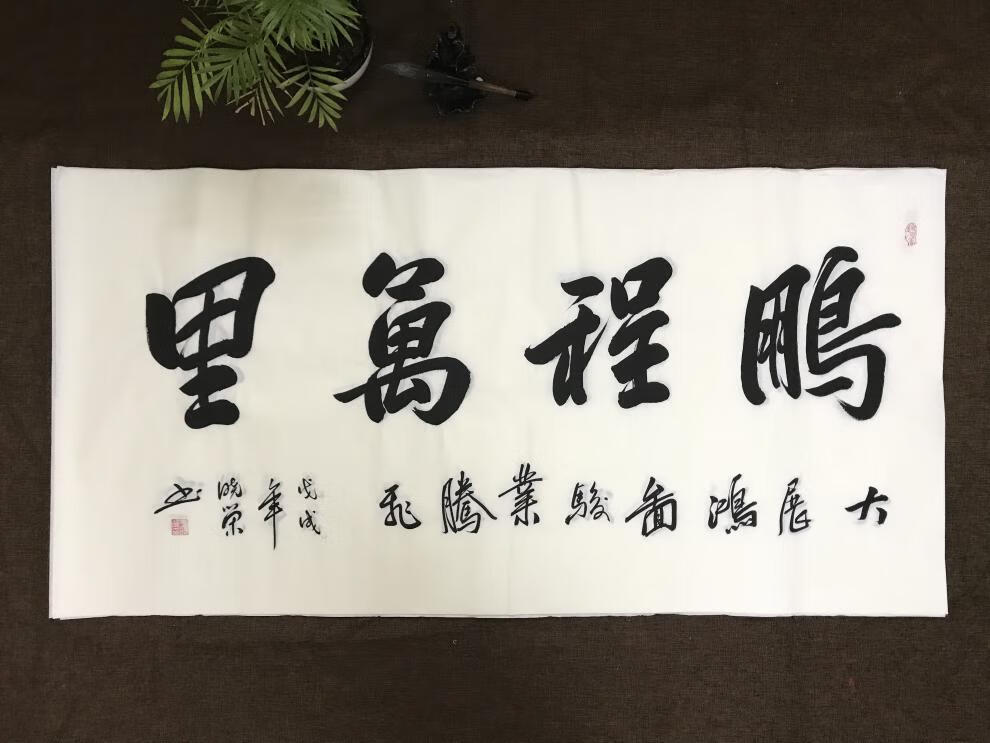 鵬程萬里
大展鴻圖駿業騰飛
戊戌
年
晓荣
书